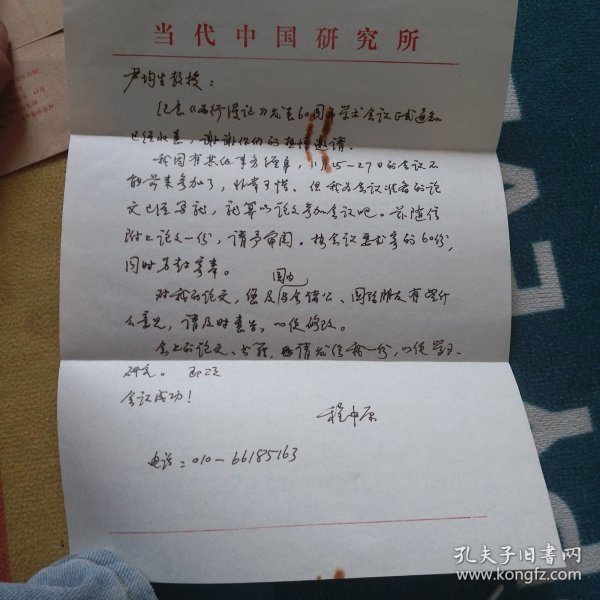 当代中国研究所
尹均生教授：
纪念《西行漫记》发表60周年学术会议正式通知
已经收悉，谢谢你们的热情邀请。
我因有其他事务缠身，11月25-27日的会议不
能前来参加了，非常可惜。但我为会议准备的论
文已经写就，就算以论文参加会议吧。兹随信
附上论文一份，请予审阅。按会议要求寄的60份，
同时另封寄奉。
对我的论文，您及与会诸公、国内国际朋友有些什
么意见，请及时惠告，以便修改。
会上的论文、书籍，请发给我一份，以便学习、
研究。即颂
会议成功！
程中原
电话：010-66185163
孔夫子旧书网
www.kongfz.com